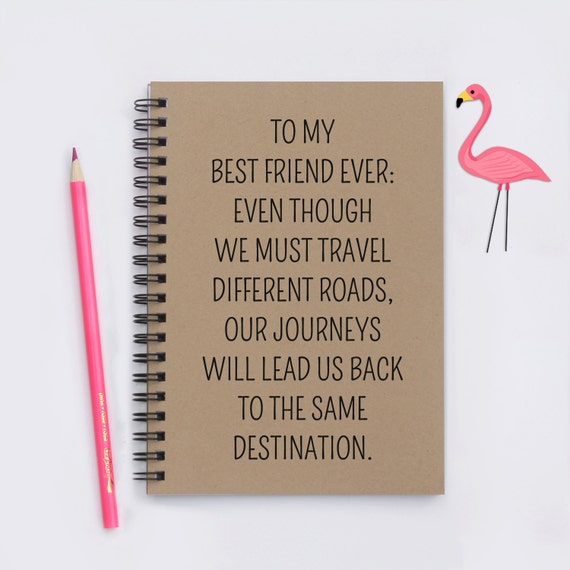 TO MY
BEST FRIEND EVER:
EVEN THOUGH
WE MUST TRAVEL
DIFFERENT ROADS,
OUR JOURNEYS
WILL LEAD US BACK
TO THE SAME
DESTINATION.